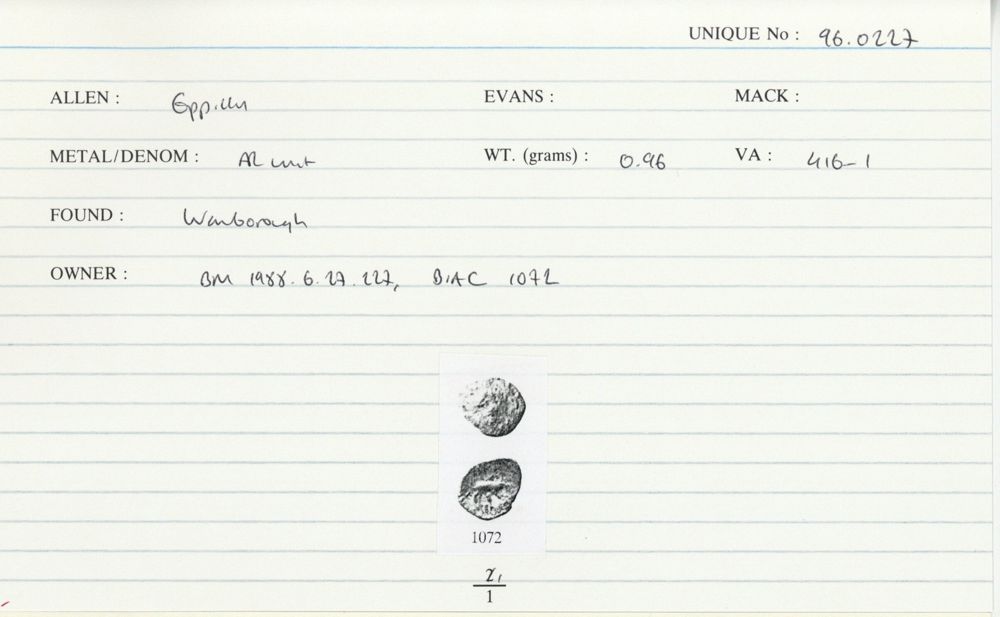 UNIQUE No : 96.0227
ALLEN : Eppillus EVANS : MACK :
METAL/DENOM : AR unit WT. (grams) : 0.96 VA : 416-1
FOUND : Wanborough
OWNER : BM 1988.6.27.227, BIAC 1072
1072
1